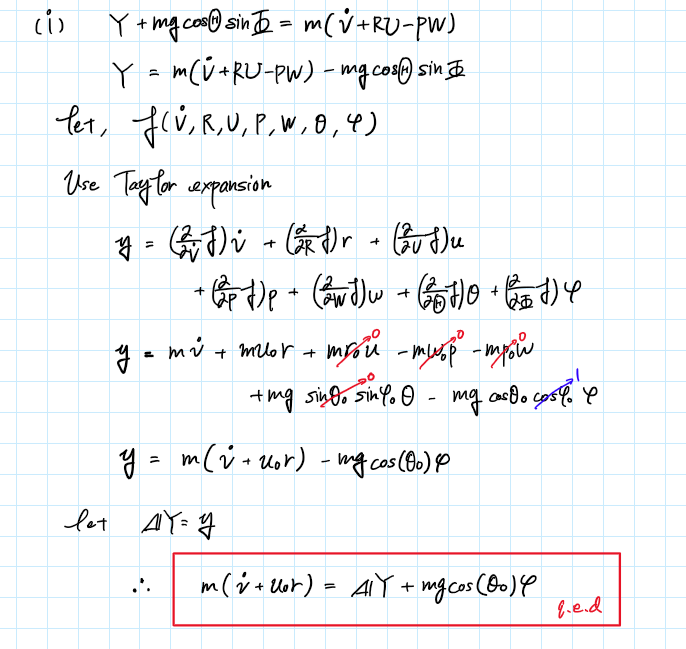 (i) Y + mg cosⒽ sinΦ = m(v̇ + RU - PW)
Y = m(v̇ + RU - PW) - mg cosⒽ sinΦ
let, f(v̇, R, U, P, W, θ, φ)
Use Taylor expansion
y = (∂/∂v̇ f)v̇ + (∂/∂R f)r + (∂/∂U f)u
+ (∂/∂P f)p + (∂/∂W f)w + (∂/∂Ⓗ f)θ + (∂/∂Φ f)φ
y = mv̇ + mu₀r + mr₀u 0 - mw₀p 0 - mp₀w 0
+ mg sinθ₀ sinφ₀ 0 θ - mg cosθ₀ cosφ₀ 1 φ
y = m(v̇ + u₀r) - mg cos(θ₀)φ
let ΔY = y
∴ m(v̇ + u₀r) = ΔY + mg cos(θ₀)φ
q.e.d